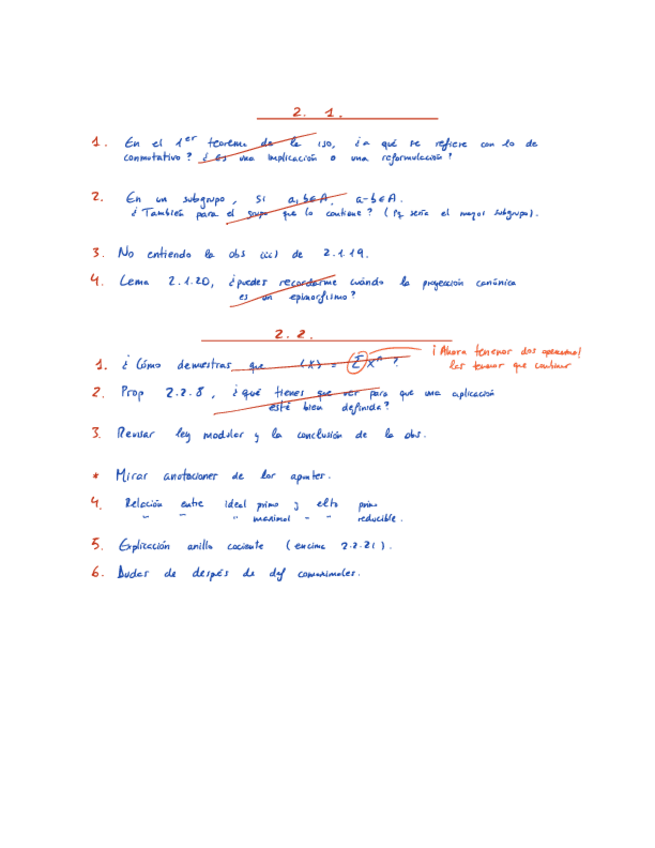 2. 1.
1. En el 1er teorema de la iso, ¿a qué se refiere con lo de
conmutativo? ¿Es una implicación o una reformulación?
2. En un subgrupo, si a, b ∈ A, a-b ∈ A.
¿También para el grupo que lo contiene? (Pq sería el mayor subgrupo).
3. No entiendo la obs (ii) de 2.1.19.
4. Lema 2.1.20, ¿puedes recordarme cuándo la proyección canónica
es un epimorfismo?
2.2.
1. ¿Cómo demuestras que (X) = Σ X^n ?
¡Ahora tenemos dos operaciones!
las tenemos que combinar
2. Prop 2.2.8, ¿qué tienes que ver para que una aplicación
esté bien definida?
3. Revisar ley modular y la conclusión de la obs.
* Mirar anotaciones de los apuntes.
4. Relación entre ideal primo y elto primo
" " " maximal - - reducible.
5. Explicación anillo cociente (encima 2.2.21).
6. Dudas de despés de def comaximales.